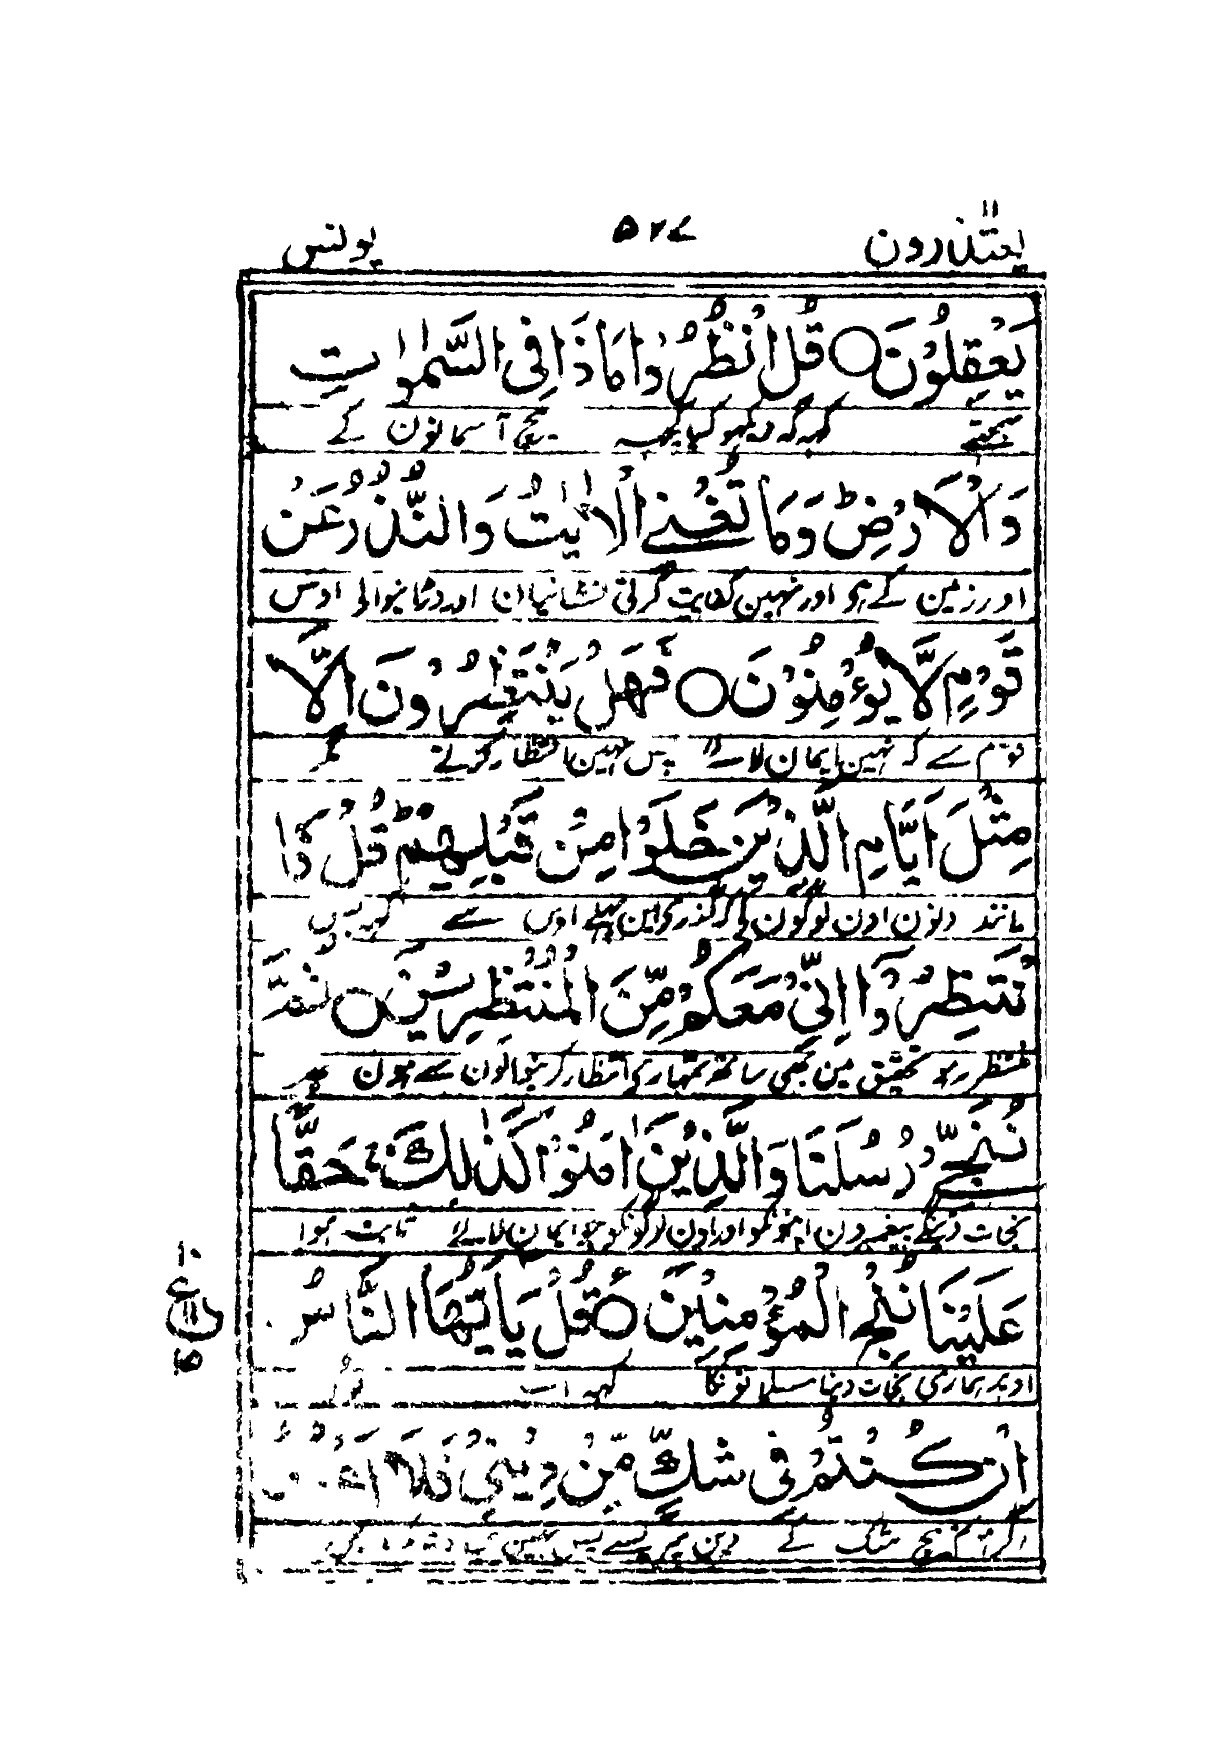 یعتذرون ۱۱
۵۲۷
یونس
يَعْقِلُوْنَ ○ قُلِ انْظُرُوْا مَاذَا فِى السَّمٰوٰتِ
سمجھتے کہہ کہ دیکھو کیا کچھہ بیچ آسمانون کے
وَالْاَرْضِ ؕ وَمَا تُغْنِے الْاٰيٰتُ وَالنُّذُرُ عَنْ
اور زمین کے ہی اور نہین کفایت کرتی نشانیان اور ڈرانیوالی اوس
قَوْمٍ لَّا يُؤْمِنُوْنَ ○ فَهَلْ يَنْتَظِرُوْنَ اِلَّا
قوم سے کہ نہین ایمان لاتے پس نہین انتظار کرتے مگر
مِثْلَ اَيَّامِ الَّذِيْنَ خَلَوْا مِنْ قَبْلِهِمْ ؕ قُلْ فَا
مانند دنون اون لوگون کی کہ گذری ہین پہلے اوس سے کہہ پس
نْتَظِرُوْٓا اِنِّىْ مَعَكُمْ مِّنَ الْمُنْتَظِرِيْنَ ○ ثُمَّ
منتظر رہو تحقیق مین بھی ساتھ تمہاری انتظار کرنیوالون سے ہون پھر
نُنَجِّىْ رُسُلَنَا وَالَّذِيْنَ اٰمَنُوْا كَذٰلِكَ ۚ حَقًّا
نجات دینگے پیغمبرون اپنونکو اور اون لوگونکو جو ایمان لائے ثابت ہوا
عَلَيْنَا نُنْجِ الْمُؤْمِنِيْنَ ○ قُلْ يٰٓاَيُّهَا النَّاسُ
اوپر ہماری نجات دینا مسلمانونکا کہہ اے لوگو
۱۰
ع
۱۱
۱۵
اِنْ كُنْتُمْ فِىْ شَكٍّ مِّنْ دِيْنِىْ فَلَآ اَعْبُدُ
اگر ہو تم بیچ شک کے دین میرے سے پس نہین